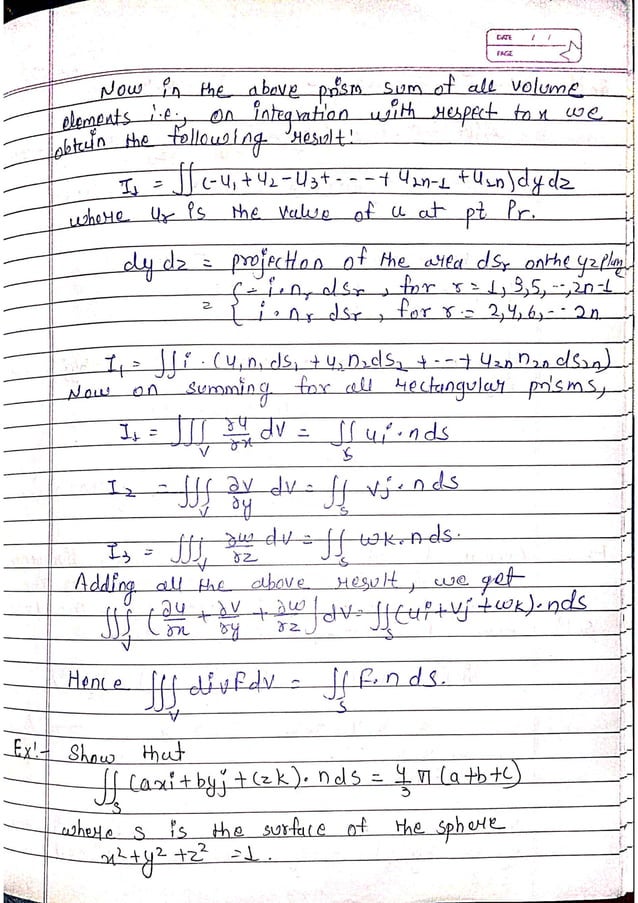 DATE / /
PAGE
Now in the above prism sum of all volume
elements i.e., on integration with respect to x we
obtain the following result!
I₁ = ∬(-u₁+u₂-u₃+----+u₂ₙ-₁+u₂ₙ)dydz
where uᵣ is the value of u at pt Pᵣ.
dydz = projection of the area dsᵣ on the yz plane
= { -i•nᵣ dsᵣ , for r = 1,3,5,--,2n-1
{ i•nᵣ dsᵣ , for r = 2,4,6,--2n
I₁ = ∬i•(u₁n₁ds₁ + u₂n₂ds₂ + ---+ u₂ₙn₂ₙds₂ₙ)
Now on summing for all rectangular prisms,
I₁ = ∭_V ∂u/∂x dv = ∬_S ui•nds
I₂ = ∭_V ∂v/∂y dv = ∬_S vj•nds
I₃ = ∭_V ∂w/∂z dv = ∬_S wk.nds.
Adding all the above result, we get
∭_V (∂u/∂x + ∂v/∂y + ∂w/∂z) dv = ∬_S (ui+vj+wk)•nds
Hence ∭_V divFdv = ∬_S F.nds.
Ex!- Show that
∬_S (axi+byj+czk)•nds = 4/3 π (a+b+c)
where s is the surface of the sphere
x²+y²+z² =1.